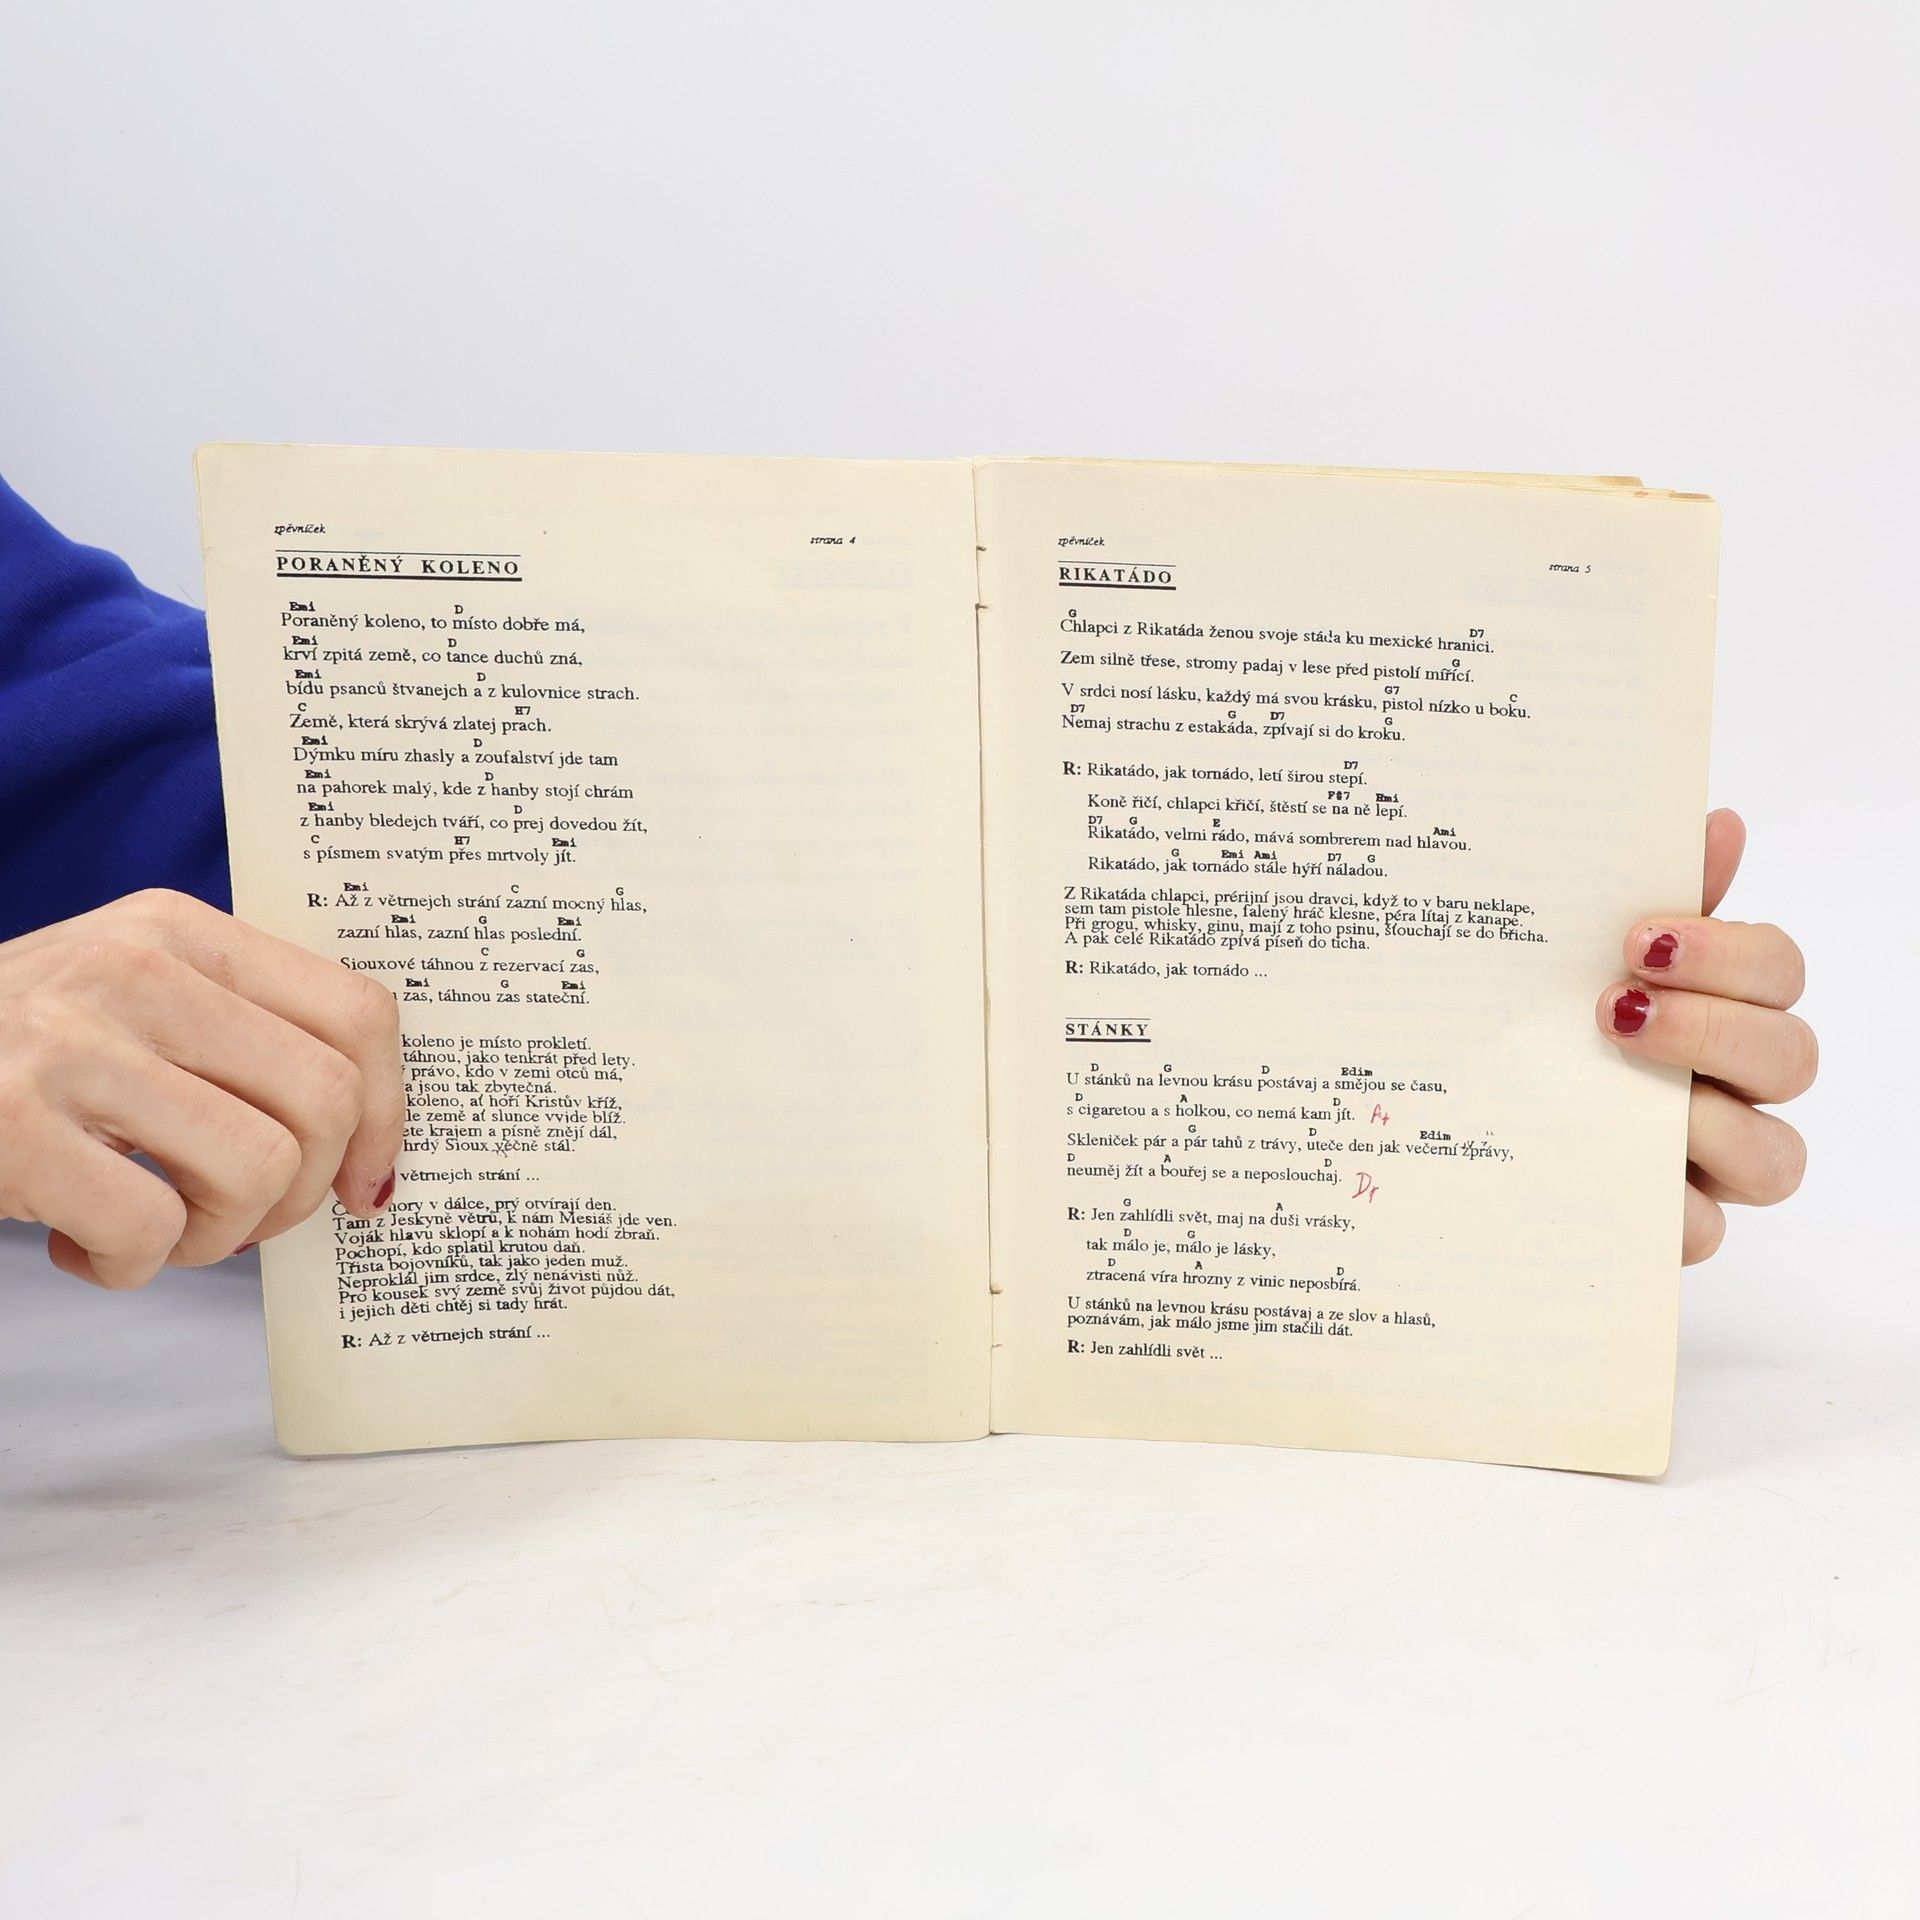 zpěvníček
strana 4
PORANĚNÝ KOLENO
Emi D
Poraněný koleno, to místo dobře má,
Emi D
krví zpitá země, co tance duchů zná,
Emi D
bídu psanců štvanejch a z kulovnice strach.
C H7
Země, která skrývá zlatej prach.
Emi D
Dýmku míru zhasly a zoufalství jde tam
Emi D
na pahorek malý, kde z hanby stojí chrám
Emi D
z hanby bledejch tváří, co prej dovedou žít,
C H7 Emi
s písmem svatým přes mrtvoly jít.
Emi C G
R: Až z větrnejch strání zazní mocný hlas,
Emi G Emi
zazní hlas, zazní hlas poslední.
C G
Siouxové táhnou z rezervací zas,
Emi G Emi
zas, táhnou zas stateční.
koleno je místo prokletí.
táhnou, jako tenkrát před lety.
právo, kdo v zemi otců má,
jsou tak zbytečná.
koleno, ať hoří Kristův kříž,
země ať slunce vyjde blíž.
krajem a písně znějí dál,
hrdý Sioux věčně stál.
větrnejch strání ...
hory v dálce, prý otvírají den.
Tam z Jeskyně větrů, k nám Mesiáš jde ven.
Voják hlavu sklopí a k nohám hodí zbraň.
Pochopí, kdo splatil krutou daň.
Třista bojovníků, tak jako jeden muž.
Neproklál jim srdce, zlý nenávisti nůž.
Pro kousek svý země svůj život půjdou dát,
i jejich děti chtěj si tady hrát.
R: Až z větrnejch strání ...
zpěvníček
strana 5
RIKATÁDO
G D7
Chlapci z Rikatáda ženou svoje stáda ku mexické hranici.
G
Zem silně třese, stromy padaj v lese před pistolí mířící.
G7 C
V srdci nosí lásku, každý má svou krásku, pistol nízko u boku.
D7 G D7 G
Nemaj strachu z estakáda, zpívají si do kroku.
D7
R: Rikatádo, jak tornádo, letí širou stepí.
F#7 Hmi
Koně řičí, chlapci křičí, štěstí se na ně lepí.
D7 G E Ami
Rikatádo, velmi rádo, mává sombrerem nad hlavou.
G Emi Ami D7 G
Rikatádo, jak tornádo stále hýří náladou.
Z Rikatáda chlapci, prérijní jsou dravci, když to v baru neklape,
sem tam pistole hlesne, falený hráč klesne, péra lítaj z kanape.
Při grogu, whisky, ginu, mají z toho psinu, šťouchají se do břicha.
A pak celé Rikatádo zpívá píseň do ticha.
R: Rikatádo, jak tornádo ...
STÁNKY
D G D Edim
U stánků na levnou krásu postávaj a smějou se času,
D A D
s cigaretou a s holkou, co nemá kam jít.
G D Edim
Skleniček pár a pár tahů z trávy, uteče den jak večerní zprávy,
D A D
neuměj žít a bouřej se a neposlouchaj.
G A
R: Jen zahlídli svět, maj na duši vrásky,
D G
tak málo je, málo je lásky,
D A D
ztracená víra hrozny z vinic neposbírá.
U stánků na levnou krásu postávaj a ze slov a hlasů,
poznávám, jak málo jsme jim stačili dát.
R: Jen zahlídli svět ...